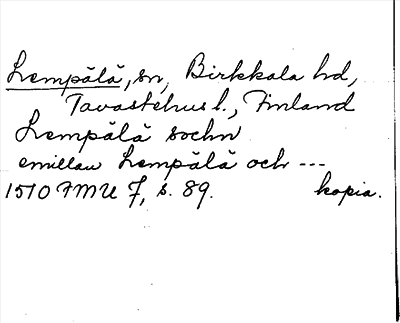 Lempälä, sn, Birkkala hd,
Tavastehus l., Finland
Lempälä sochn
emillan Lempälä och ---
1510 FMU 7, s. 89. kopia.